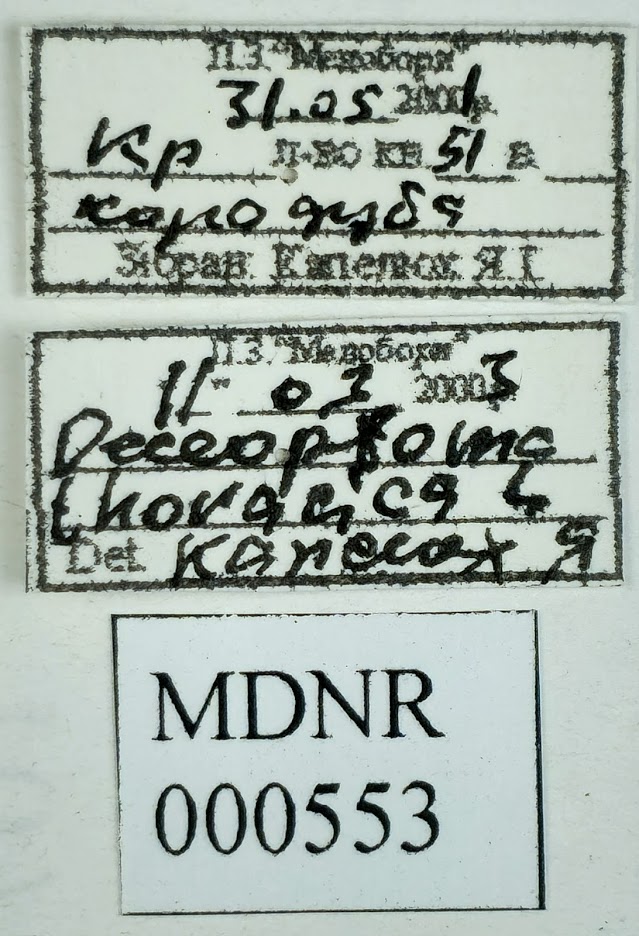 П.З. "Медобори"
31.05 2001р.
Кр л-во кв 51 в
коло дуба
Зібрав: Капелюх Я.І.
П.З. "Медобори"
11" 03 2003р.
Oeceoptoma
thoracica L
Det. Капелюх Я
MDNR
000553